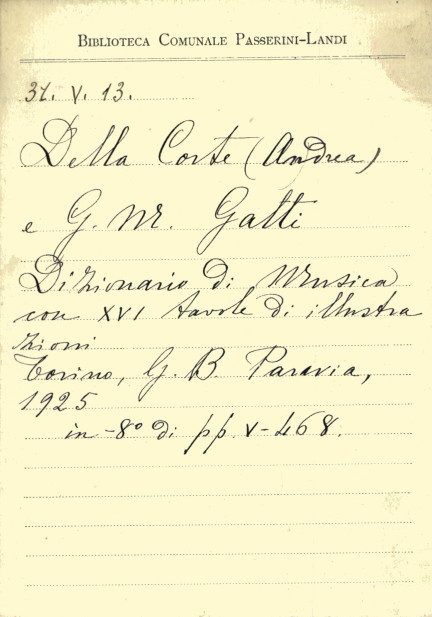 BIBLIOTECA COMUNALE PASSERINI-LANDI
31. V. 13.
Della Corte (Andrea)
e G. M. Gatti
Dizionario di Musica
con XVI tavole di illustra
zioni
Torino, G. B. Paravia,
1925
in -8° di pp. V-468.